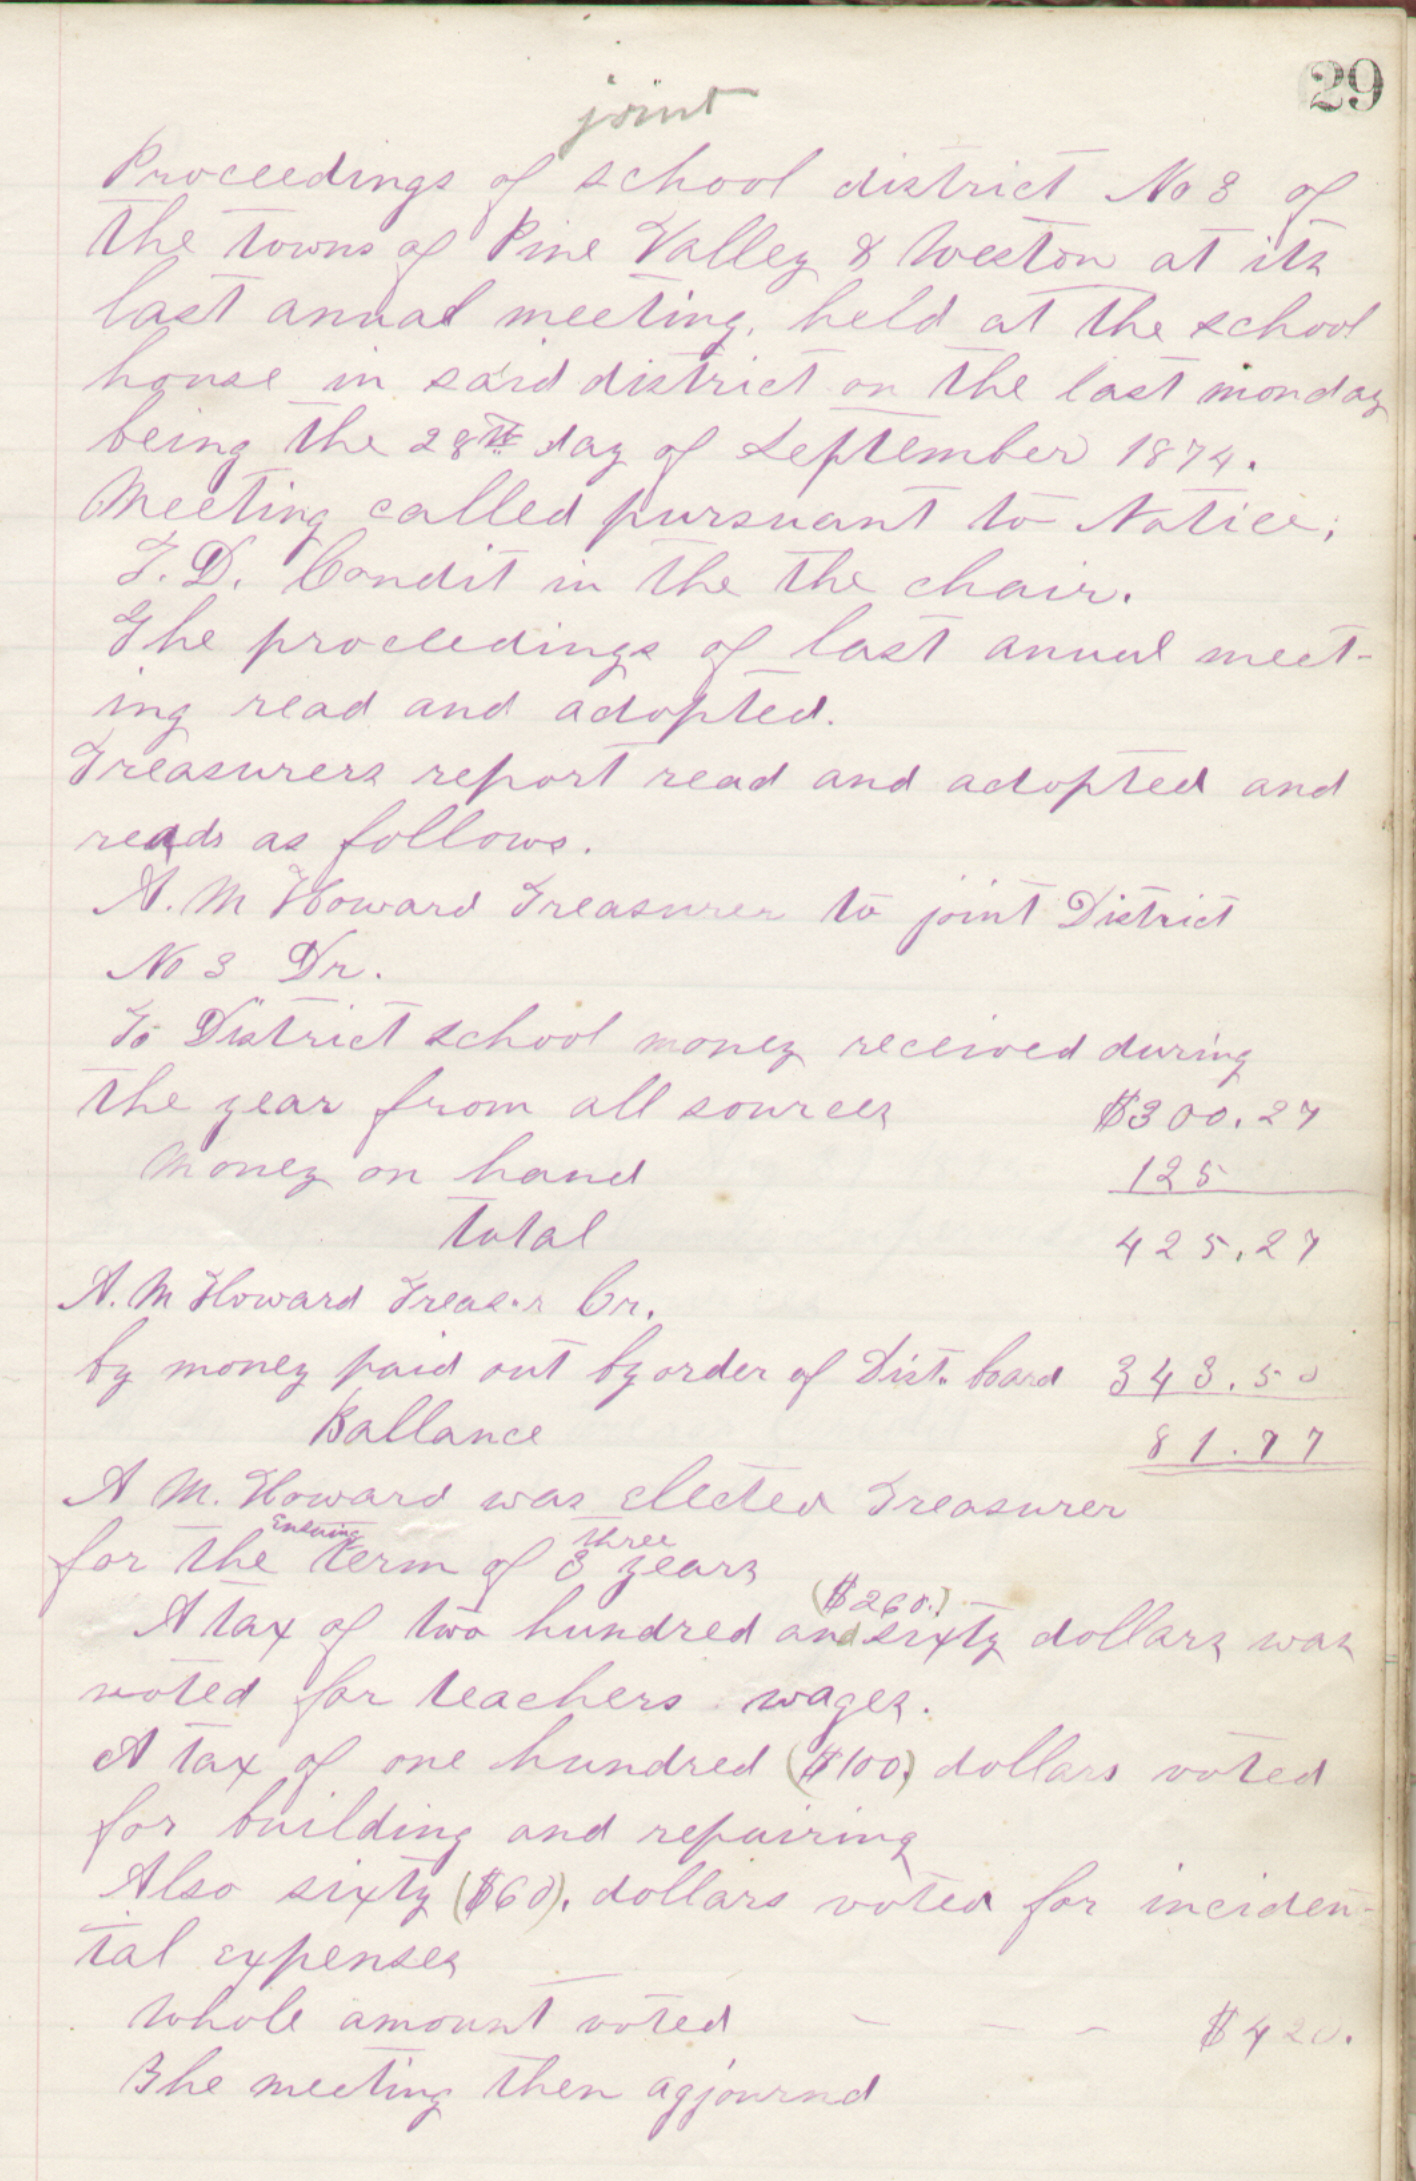 29
joint
Proceedings of school district No 3 of
the towns of Pine Valley & Weston at its
last annual meeting, held at the school
house in said district on the last monday
being the 28th day of September 1874.
Meeting called pursuant to Notice,
T. D. Condit in the the chair.
The proceedings of last annual meet-
ing read and adopted.
Treasurers report read and adopted and
reads as follows.
A. M Howard Treasurer to joint District
No 3 Dr.
To District school money received during
the year from all sources $300.27
Money on hand 125
total 425.27
A. M Howard Treasr Cr.
by money paid out by order of Dist. board 343.50
Ballance 81.77
A M. Howard was elected Treasurer
Ensuing three
for the term of 3 years
($260.)
A tax of two hundred and sixty dollars was
voted for teachers wages.
A tax of one hundred ($100.) dollars voted
for building and repairing
Also sixty ($60). dollars voted for inciden-
tal expenses
Whole amount voted - - - $420.
The meeting then agjournd